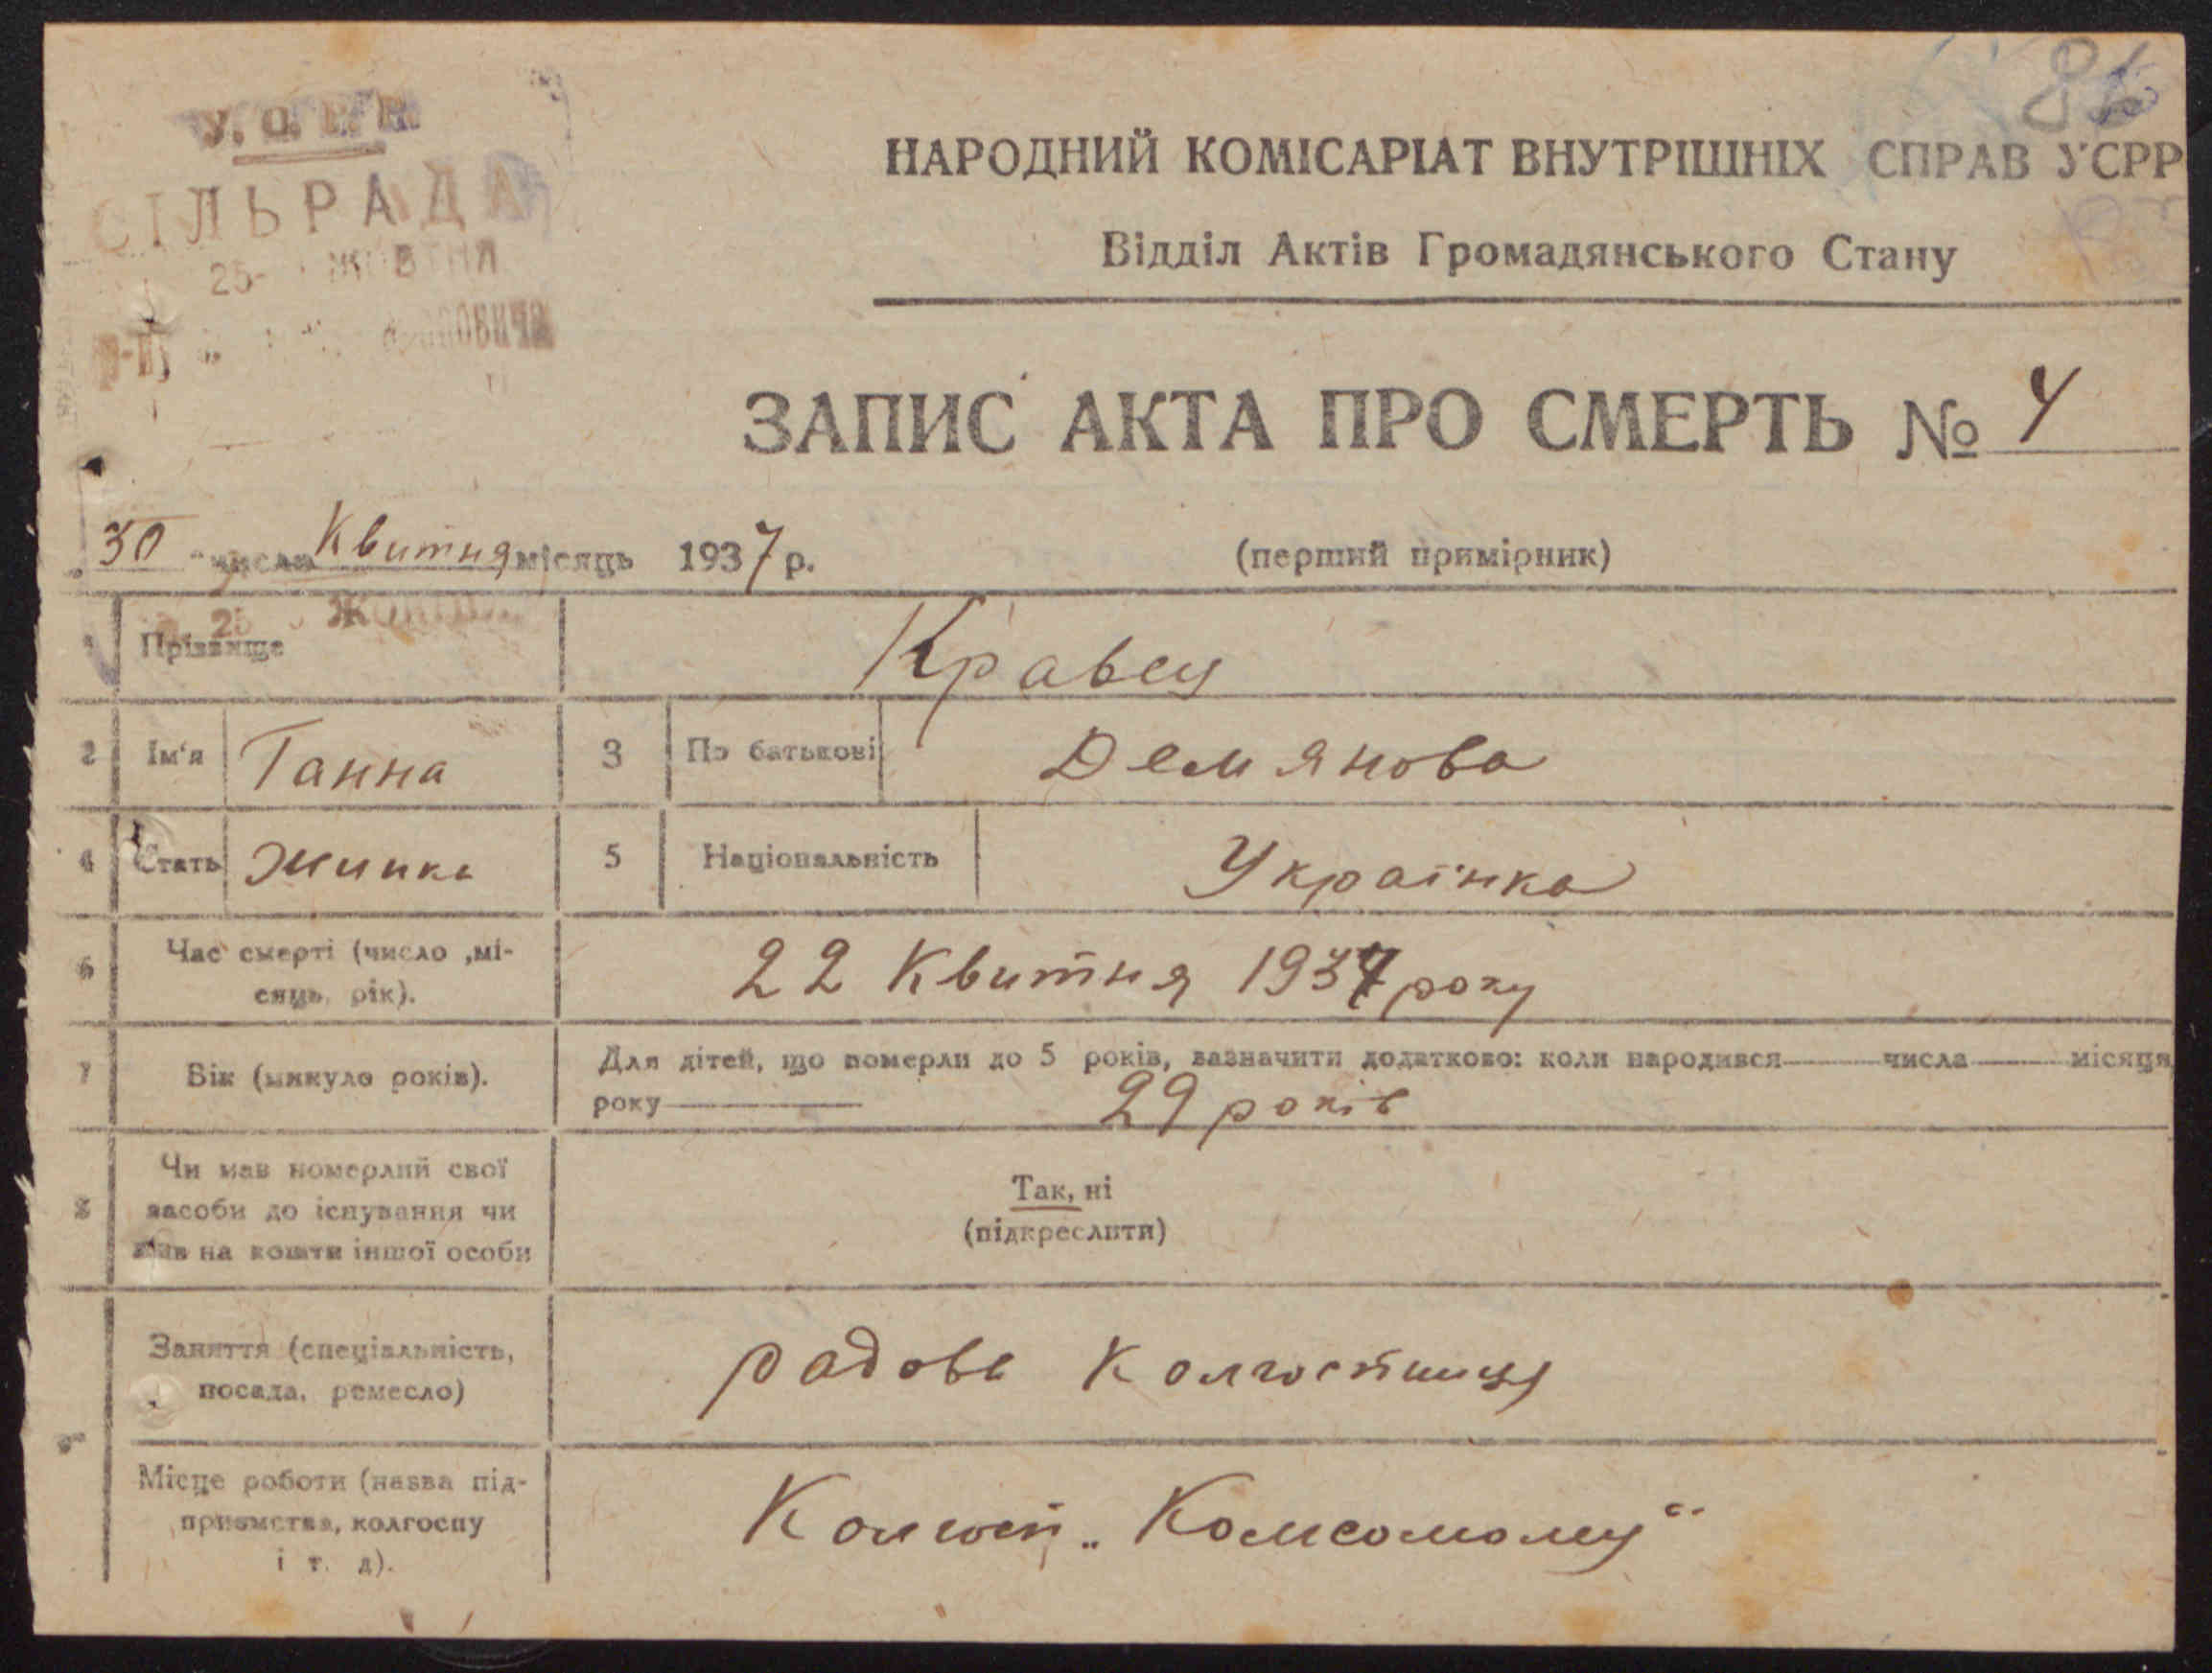 86
У.С.Р.Р.
СІЛЬРАДА
25- ЖОВТНЯ
р-ну
НАРОДНИЙ КОМІСАРІАТ ВНУТРІШНІХ СПРАВ УСРР
Відділ Актів Громадянського Стану
ЗАПИС АКТА ПРО СМЕРТЬ № 4
„30“ числа Квитня місяць 1937 р.
(перший примірник)
1 Прізвище Кравец
2 Ім'я Ганна 3 По батькові Демянова
4 Стать Жинка 5 Національність Українка
6 Час смерті (число ,мі-
сяць, рік).
22 Квитня 1937 року
7 Вік (минуло років).
Для дітей, що померли до 5 років, зазначити додатково: коли народився числа місяця
року 29 років
8 Чи мав померлий свої
засоби до існування чи
жив на кошти іншої особи
Так, ні
(підкреслити)
9 Заняття (спеціальність,
посада, ремесло)
радова Колгоспниця
Місце роботи (назва під-
приємства, колгоспу
і т. д).
Колгосп „Комсомолу“